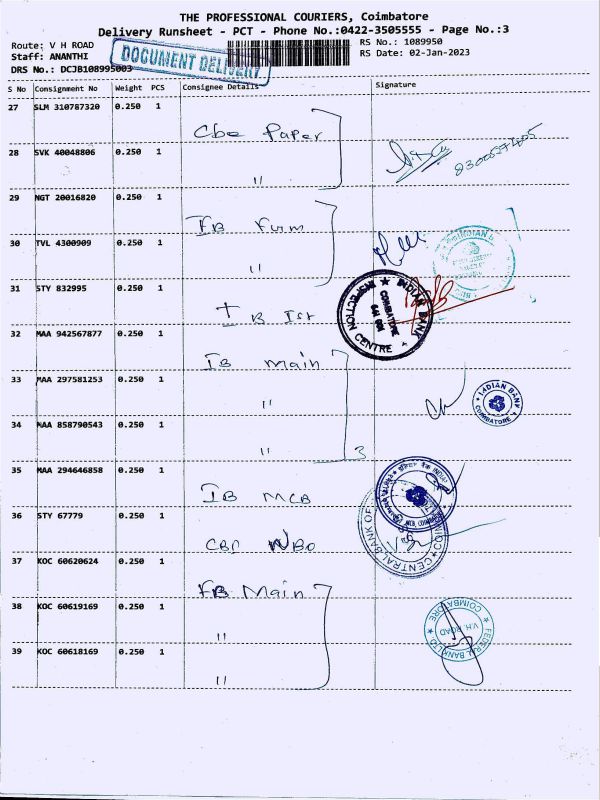 THE PROFESSIONAL COURIERS, Coimbatore
Delivery Runsheet - PCT - Phone No.:0422-3505555 - Page No.:3
Route: V H ROAD
RS No.: 1089950
Staff: ANANTHI
DOCUMENT DELIVERY
RS Date: 02-Jan-2023
DRS No.: DCJB108995003
S No Consignment No Weight PCS Consignee Details Signature
27 SLM 310787320 0.250 1
Cbe Paper
28 SVK 40048806 0.250 1
"
29 NGT 20016820 0.250 1
IB
30 TVL 4300909 0.250 1
"
31 STY 832995 0.250 1
INDIAN BANK
INSPECTION CENTRE
COIMBATORE
641 001
32 MAA 942567877 0.250 1
IB main
33 MAA 297581253 0.250 1
"
INDIAN BANK
COIMBATORE
34 MAA 858790543 0.250 1
" 3
35 MAA 294646858 0.250 1
IB MCB
36 STY 67779 0.250 1
CENTRAL BANK OF
37 KOC 60620624 0.250 1
FB Main
38 KOC 60619169 0.250 1
"
FEDERAL BANK LTD.
V.H. ROAD
COIMBATORE
39 KOC 60618169 0.250 1
"